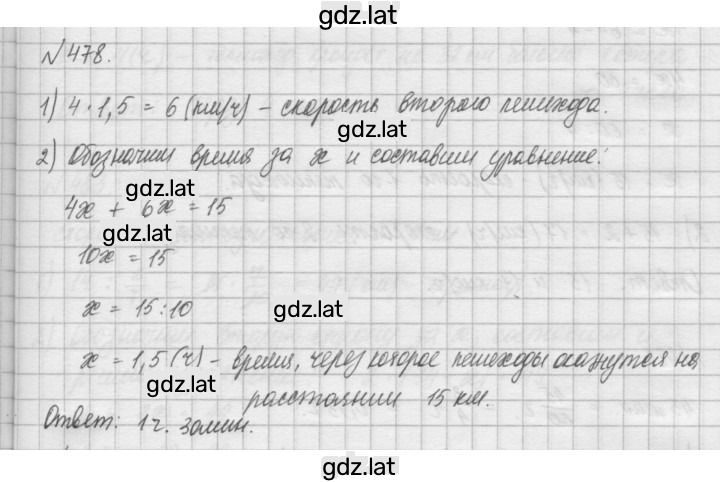 gdz.lat
№478.
1) 4 · 1,5 = 6 (км/ч) – скорость второго пешехода.
gdz.lat
2) Обозначим время за x и составим уравнение:
gdz.lat
4x + 6x = 15
gdz.lat
10x = 15
x = 15:10
gdz.lat
x = 1,5 (ч) – время, через которое пешеходы окажутся на
gdz.lat
расстоянии 15 км.
Ответ: 1 ч. 30 мин.
gdz.lat